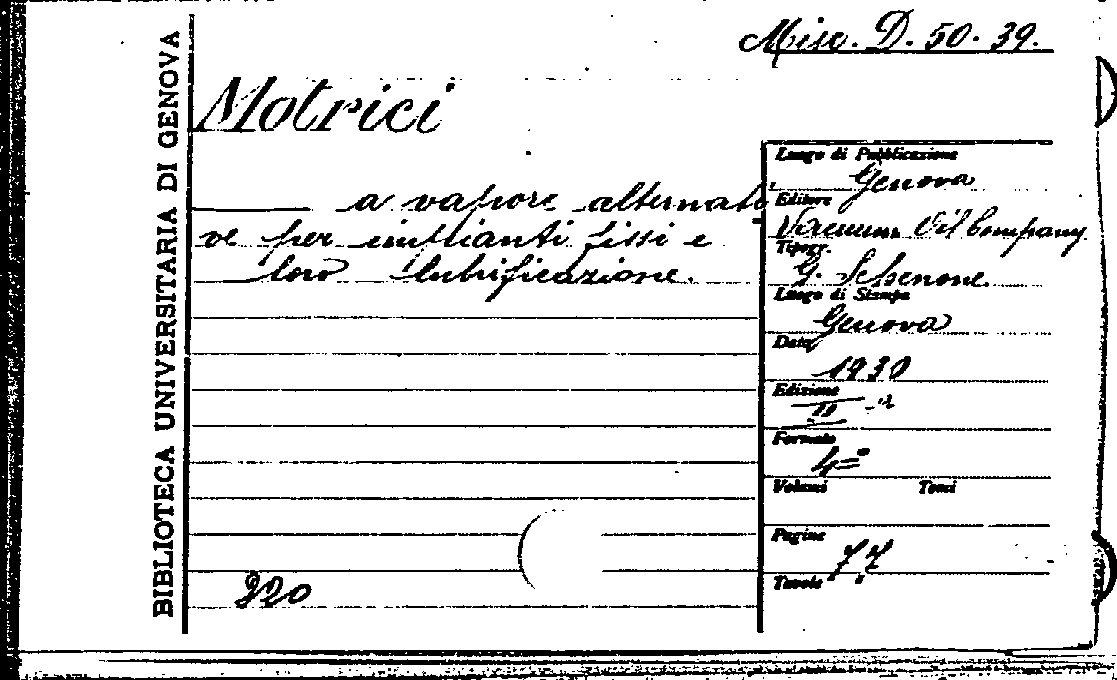 BIBLIOTECA UNIVERSITARIA DI GENOVA
Misc. D. 50. 39.
Motrici
a vapore alternati
ve per impianti fissi e
loro lubrificazione.
Luogo di Pubblicazione
Genova
Editore
Vacuum Oil Company
Tipogr.
G. Schenone.
Luogo di Stampa
Genova
Data
1930
Edizione
II-a
Formato
4º
Volumi Tomi
Pagine
77
Tavole
220